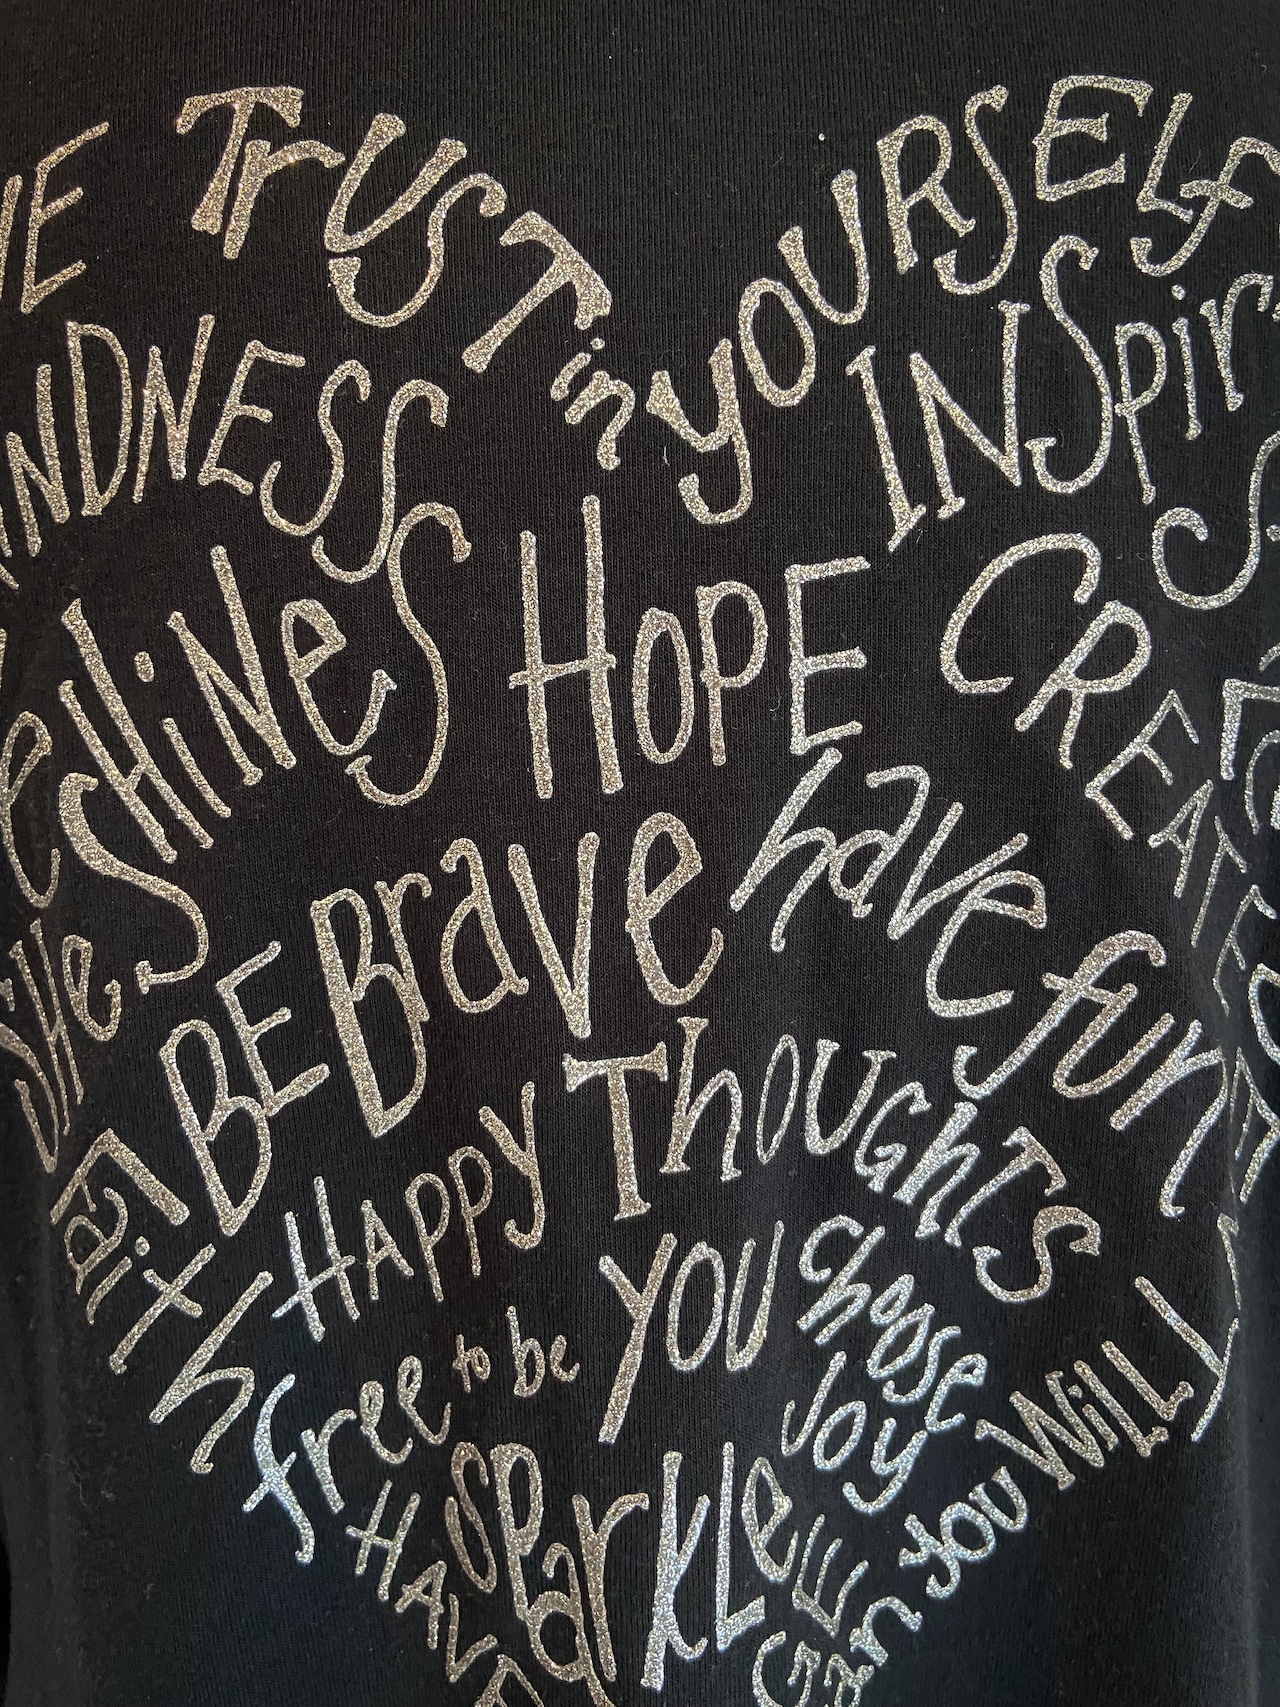 TrUST in yOURSELf
NDNESS INSpir
SHiNeS HOPE CREATE
SHe BE Brave have fun
faith HAPPy ThOUGhTS
free to be YOU choose Joy
SPArKLE
HAV
can you WiLL